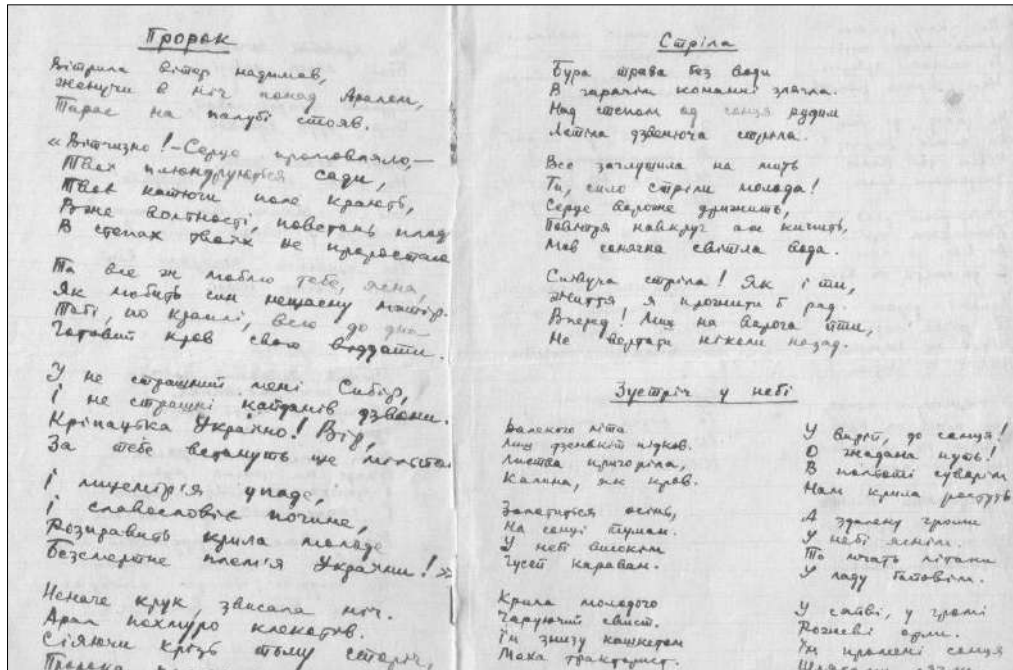 Пророк
Вітрила вітер надимав,
Женучи в ніч понад Аралом,
Тарас на палубі стояв.
«Вітчизно! – Серце промовляло, –
Твої плюндруються сади,
Твоє катюги поле крають,
Вже вольності, повстань плод
В степах твоїх не проростають
Та все ж люблю тебе, ясна,
Як любить син нещасну матір.
Тобі, по краплі, всю до дна
Готовий кров свою віддати.
У не страшний мені Сибір,
І не страшні кайданів дзвони.
Кріпацька Україно! Вір,
За тебе встануть ще мільйони
І лицемірія упаде,
І славословіє почине,
Розправить крила молоде
Безсмертне плем'я України!»
Неначе крук, звисала ніч.
Арал похмуро клекотів.
Сіяючи крізь тьму сторіч,
Пророка
Стріла
Бура трава без води
В гарячім команні злягла.
Над степом од сонця рудим
Летіла дзвенюча стріла.
Все заглушила на мить
Ти, сило стріли молода!
Серце вороже дрижить,
Повітря навкруг аж кипить,
Мов сонячна світла вода.
Співуча стріла! Як і ти,
Життя я прожити б рад.
Вперед! Лиш на ворога йти,
Не вертати ніколи назад.
Зустріч у небі
Далекого літа
Лиш дзенькіт підков.
Листва пригоріла,
Калина, як кров.
Золотиться осінь,
На сонці туман.
У небі високім
Гусей караван.
Крила молодого
Чаруючий свист.
Їм знизу кашкетом
Маха тракторист.
У вирій, до сонця!
О жадана путь!
В польоті суворім
Нам крила ростуть
А здалеку громи
У небі яснім.
То мчать літаки
У ладу бойовім.
У сяйві, у громі
Рожеві орли.
Їм промені сонця